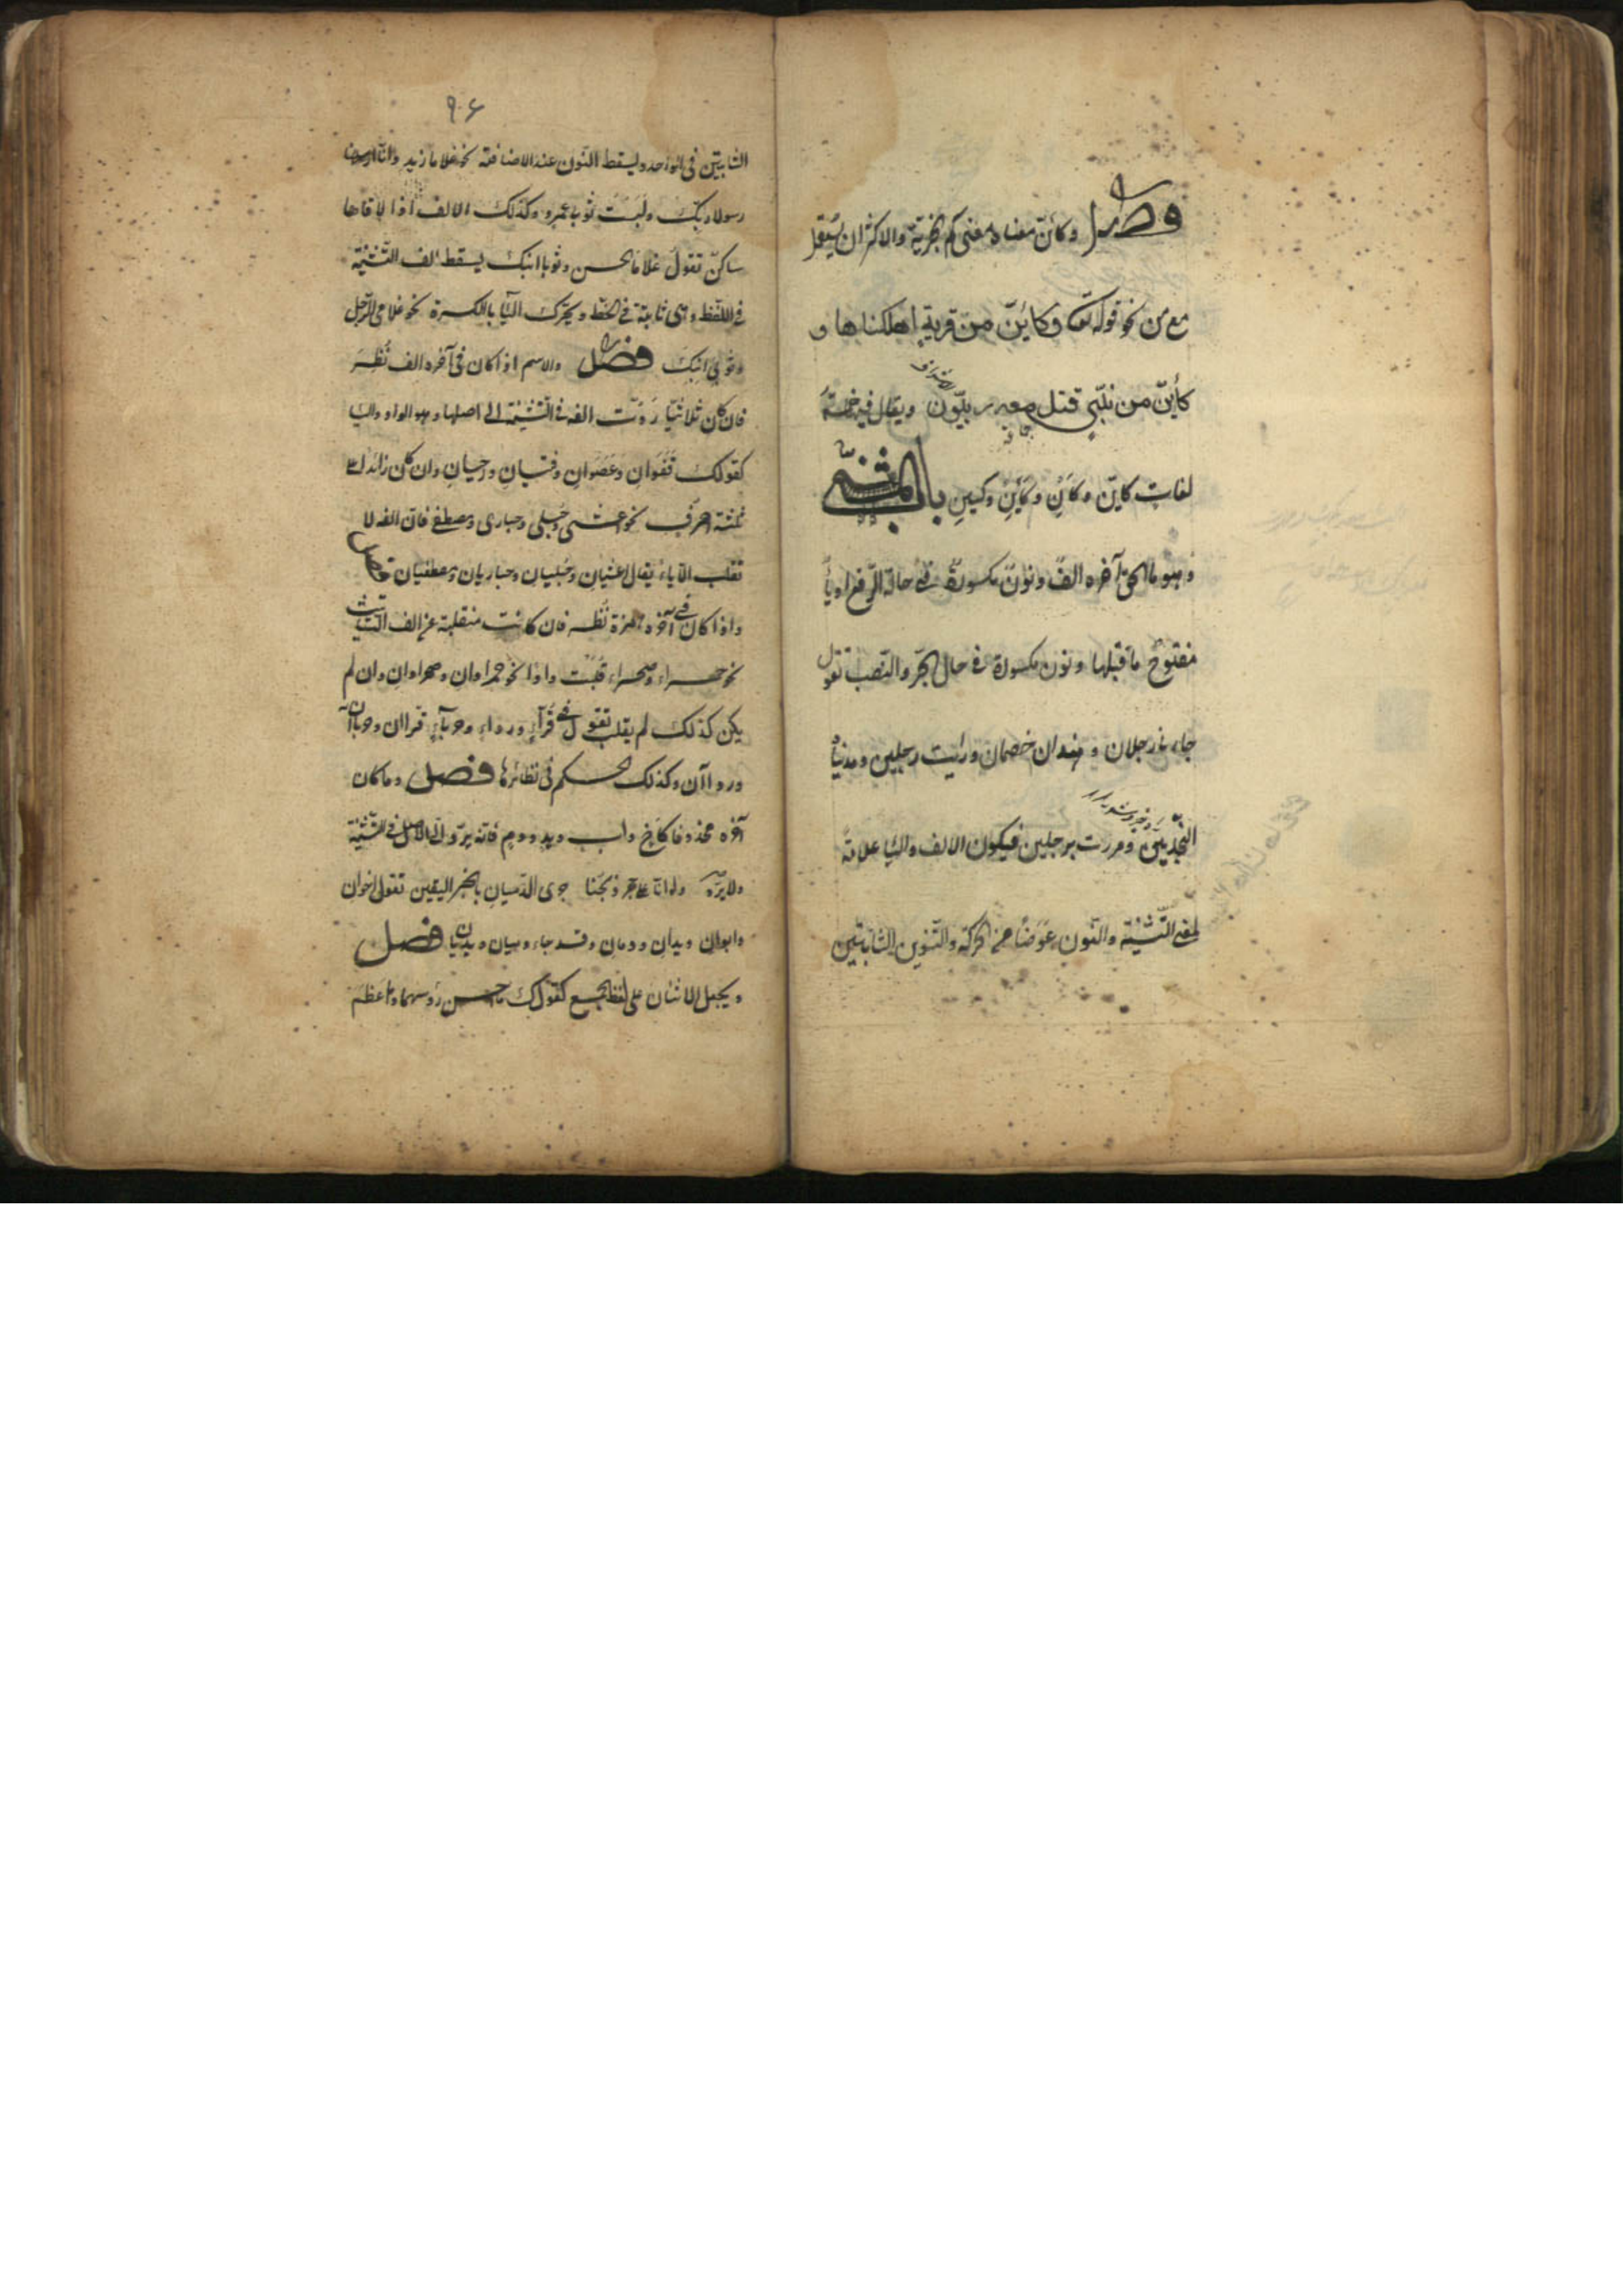 فصل وكائن معناه معنى كم الخبرية والاكثر ان يستعمل
مع من نحو قوله تعا وكائن من قرية اهلكناها و
كأين من نبي قتل معه ربيون ويقال فيه خمسة
لغات كاين وكائن وكأين وكيين باب المثنى
وهو ما الحق آخره الف ونون مكسورة في حالة الرفع او يا
مفتوح ما قبلها ونون مكسورة في حال الجر والنصب تقول
جاءنا رجلان وهذان خصمان ورايت رجلين وهديناه
النجدين ومررت برجلين فيكون الالف واليا علامة
لمعنى التثنية والنون عوضا من الحركة والتنوين الثابتين
٩٦
الثابتين في الواحد ويسقط النون عند الاضافة نحو غلاما زيد وانا
رسولا ربك ولبست ثوبى عمرو وكذلك الالف اذا لاقاها
ساكن تقول غلاما الحسن وثوبا ابنك يسقط الف التثنية
في اللفظ وهى ثابتة في الخط ويحرك اليا بالكسرة نحو غلامى الرجل
وثوبى ابنك فصل والاسم اذا كان في آخره الف نظر
فان كان ثلاثيا ردت الفه في التثنية الى اصلها وهو الواو واليا
كقولك قفوان وعصوان وفتيان ورحيان وان كان زائدا على
ثلثة احرف نحو اعشى وحبلى وحبارى ومصطفى فان الفه لا
تقلب الا ياء يقال اعشيان وحبليان وحباريان ومصطفيان فصل
واذا كان في آخره همزة نظر فان كانت منقلبة عن الف التانيث
نحو حمراء وصحراء قلبت واوا نحو حمراوان وصحراوان وان لم
يكن كذلك لم يقلب تقول في قراء ورداء وحرباء قراان وحرباآن
ورداآن وكذلك الحكم في نظائرها فصل وما كان
آخره محذوفا كاخ واب ويد ودم فانه يرد الى الاصل في التثنية
ولا يرد ولو انا على حجر ذبحنا جرى الدميان بالخبر اليقين تقول اخوان
وابوان ويدان ودمان وقد جاء دميان ويديان فصل
ويجعل الاثنان على لفظ الجمع كقولك ما احسن رؤسهما وما اعظم